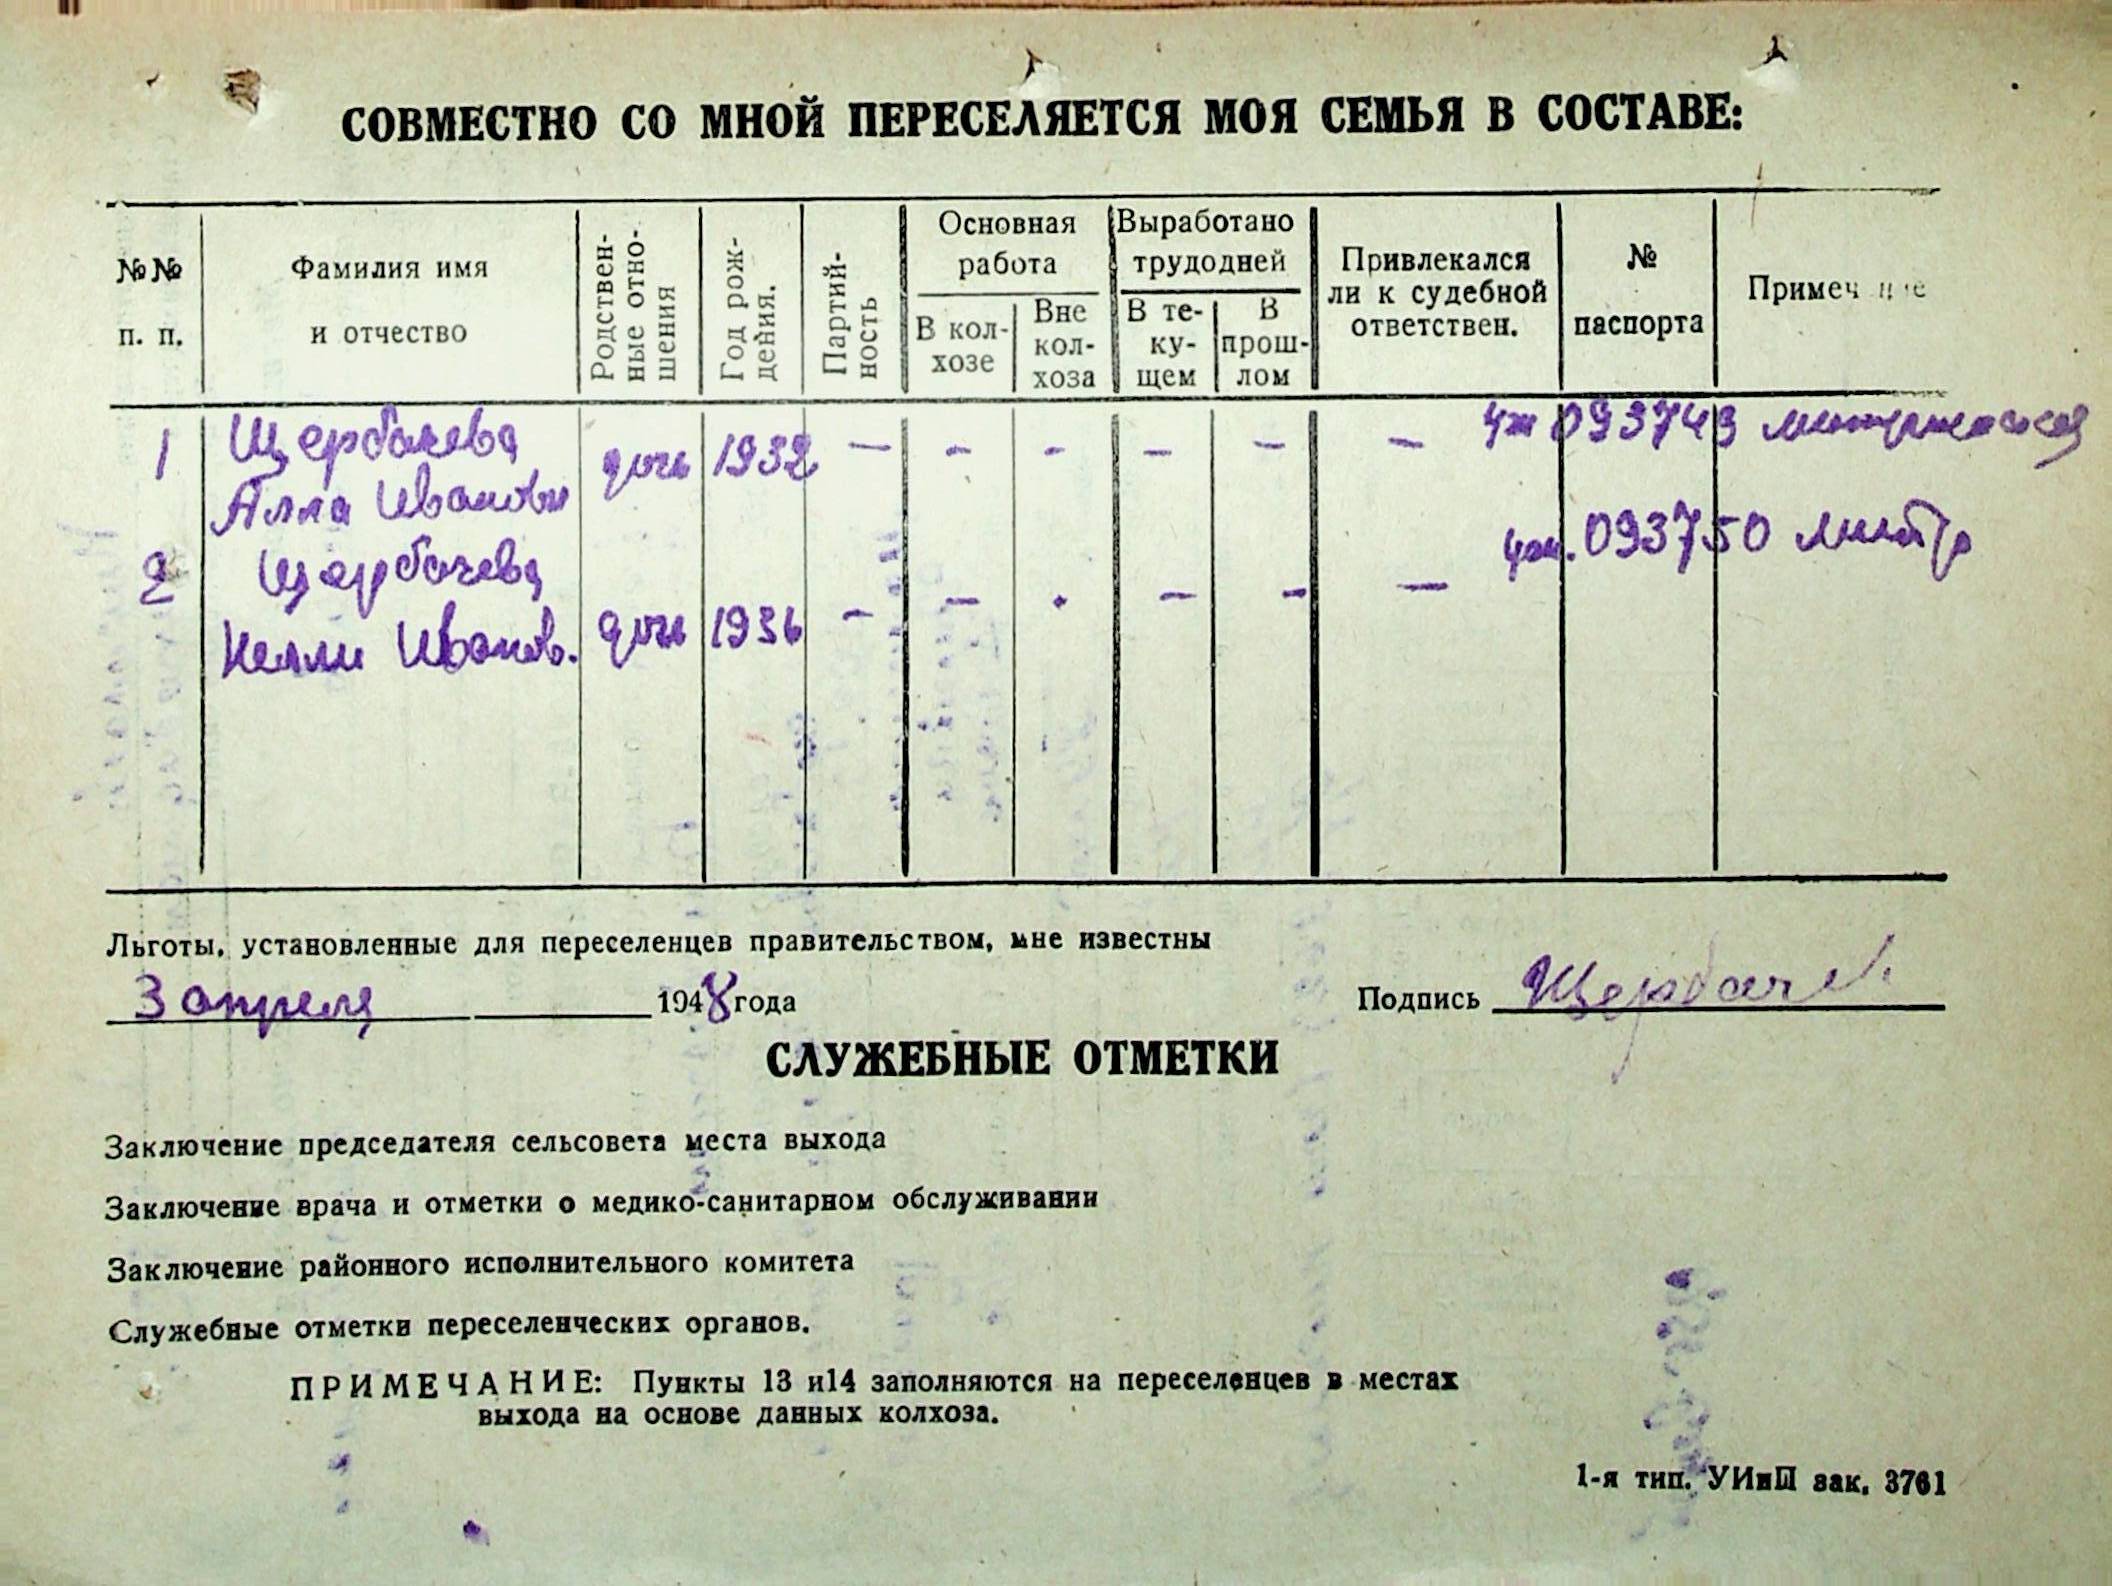 СОВМЕСТНО СО МНОЙ ПЕРЕСЕЛЯЕТСЯ МОЯ СЕМЬЯ В СОСТАВЕ:
№№ п. п.
Фамилия имя и отчество
Родствен-ные отно-шения
Год рож-дения.
Партий-ность
Основная работа
В кол-хозе
Вне кол-хоза
Выработано трудодней
В те-ку-щем
В прош-лом
Привлекался ли к судебной ответствен.
№ паспорта
Примеч
1 Щербачева дочь 1932 — - - - - - 093743
Алла Ивановн
2 Щербачева 093750
Нелли Иванов. дочь 1936 - - . - - —
Льготы, установленные для переселенцев правительством, мне известны
3 апреля 1948 года Подпись Щербачев
СЛУЖЕБНЫЕ ОТМЕТКИ
Заключение председателя сельсовета места выхода
Заключение врача и отметки о медико-санитарном обслуживании
Заключение районного исполнительного комитета
Служебные отметки переселенческих органов.
ПРИМЕЧАНИЕ: Пункты 13 и14 заполняются на переселенцев в местах
выхода на основе данных колхоза.
1-я тип. УИиП зак. 3761